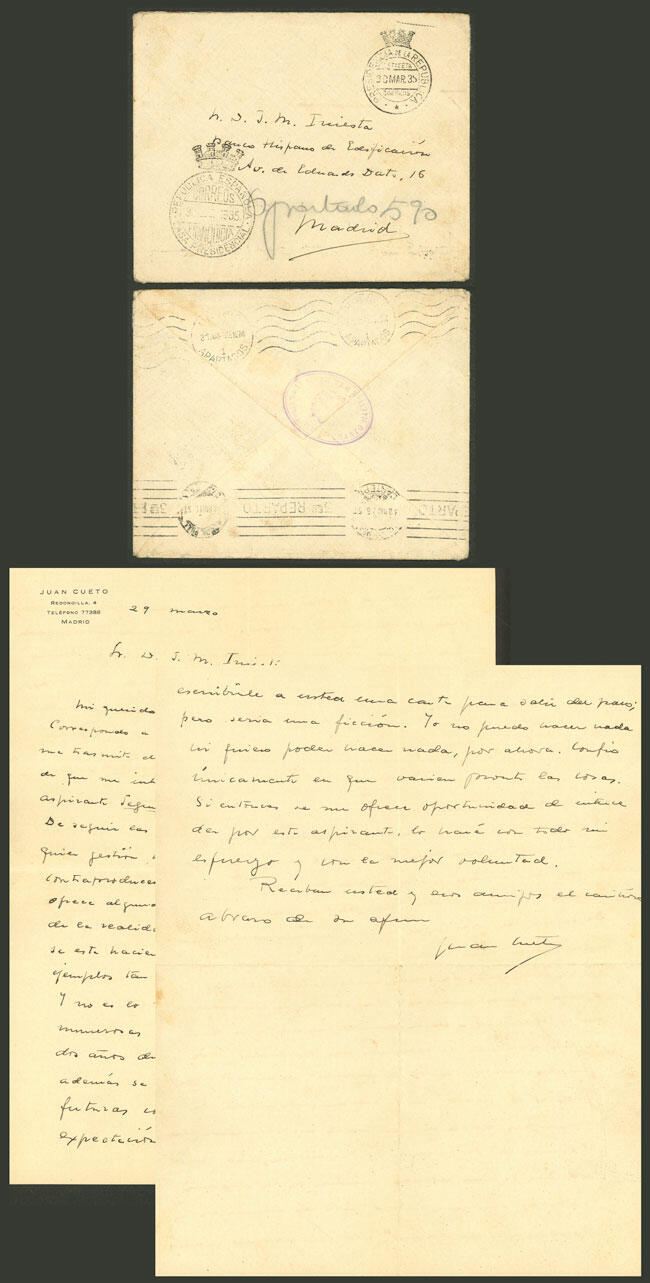 PRESIDENCIA DE LA REPUBLICA
ESTAFETA
30 MAR. 35
CORREOS
D. J. M. Iniesta
Banco Hispano de Edificación
Av. de Eduardo Dato, 16
Apartado 590
Madrid
REPUBLICA ESPAÑOLA
CORREOS
1935
FRANQUICIA
PRESIDENCIAL
APARTADOS
APARTADOS
3er REPARTO
REPARTO
JUAN CUETO
REDONDILLA, 4
TELÉFONO 77388
MADRID
29 marzo
Sr. D. J. M. Inies
Mi querido
Correspondo a
me trasmite el
de que me int
aspirante Segun
De seguir las
quier gestión,
contraproducen
ofrece alguno
de la realid
se está hacien
ejemplos tan
Y no es lo
numerosas
dos años de
además se
futuras
expectación
escribirle a usted una carta para salir del paso;
pero sería una ficción. Yo no puedo hacer nada
ni quiero poder hacer nada, por ahora. Confío
únicamente en que varien pronto las cosas.
Si entonces se me ofrece oportunidad de interce
der por este aspirante, lo haré con todo mi
esfuerzo y con la mejor voluntad.
Reciban usted y esos amigos el cariñoso
abrazo de su afmo
Juan Cueto